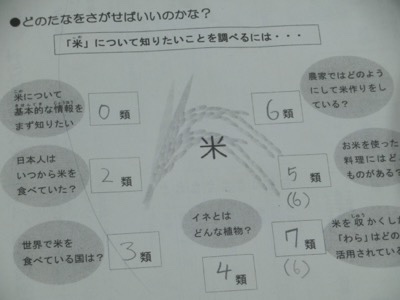 ●どのたなをさがせばいいのかな？
「米」について知りたいことを調べるには・・・
米について
基本的な情報を
まず知りたい
0類
6類
農家ではどのよう
にして米作りをし
ている？
日本人は
いつから米を
食べていた？
2類
米
5類
(6)
お米を使った
料理にはど
ものがある？
世界で米を
食べている国は？
3類
イネとは
どんな植物？
4類
7類
(6)
米を収かくした
「わら」はどの
活用されている